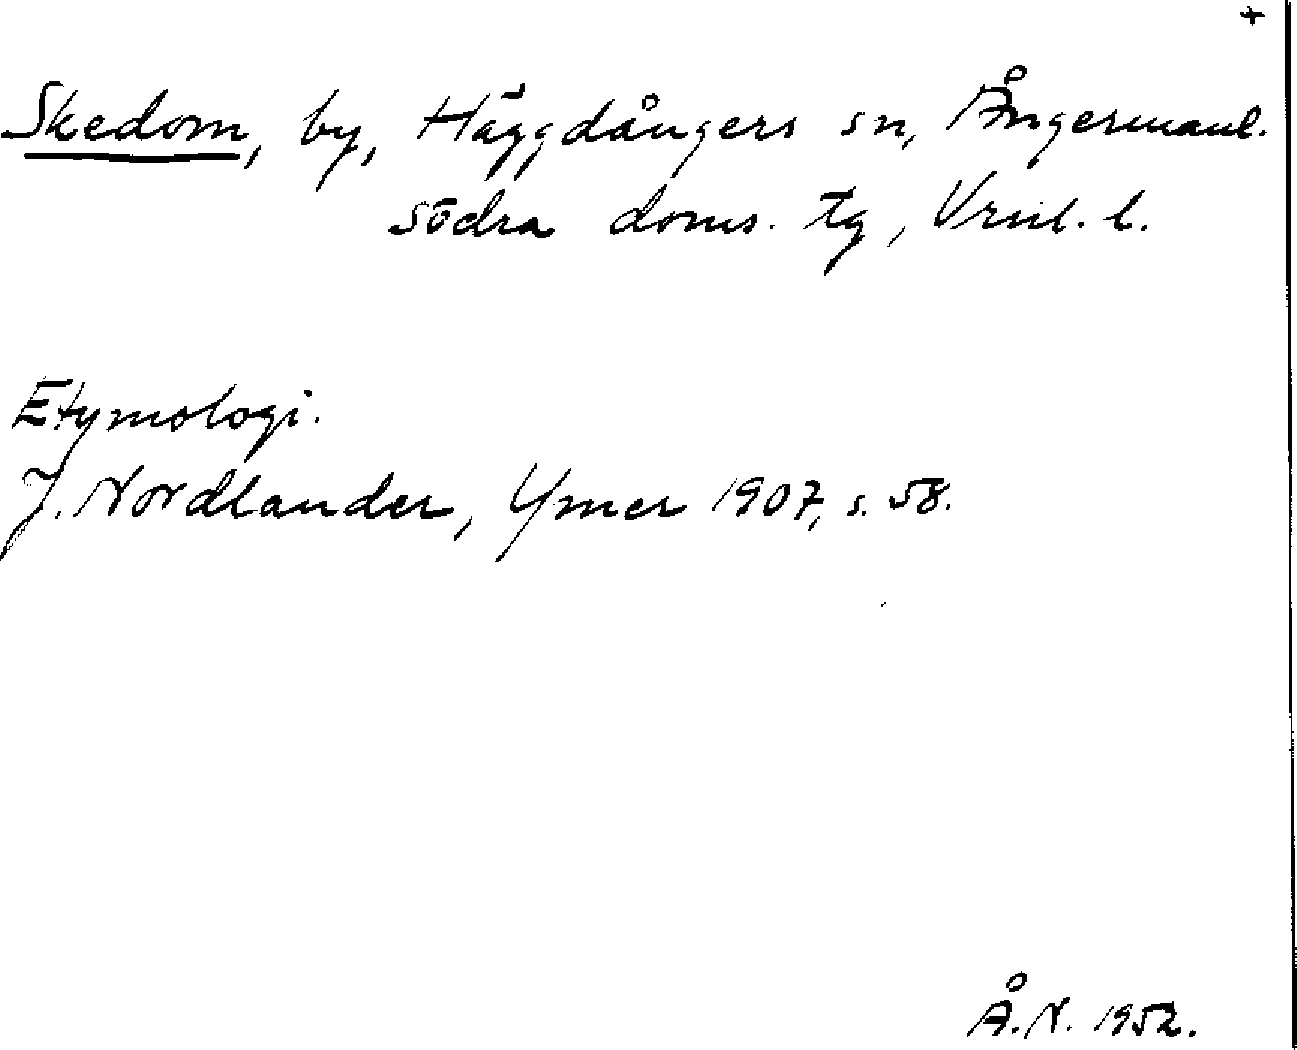 +
Skedom, by, Häggdångers sn, Ångermanl.
södra doms. tg, Vrnl. l.
Etymologi.
J. Nordlander, Ymer 1907, s. 58.
Å. N. 1952.